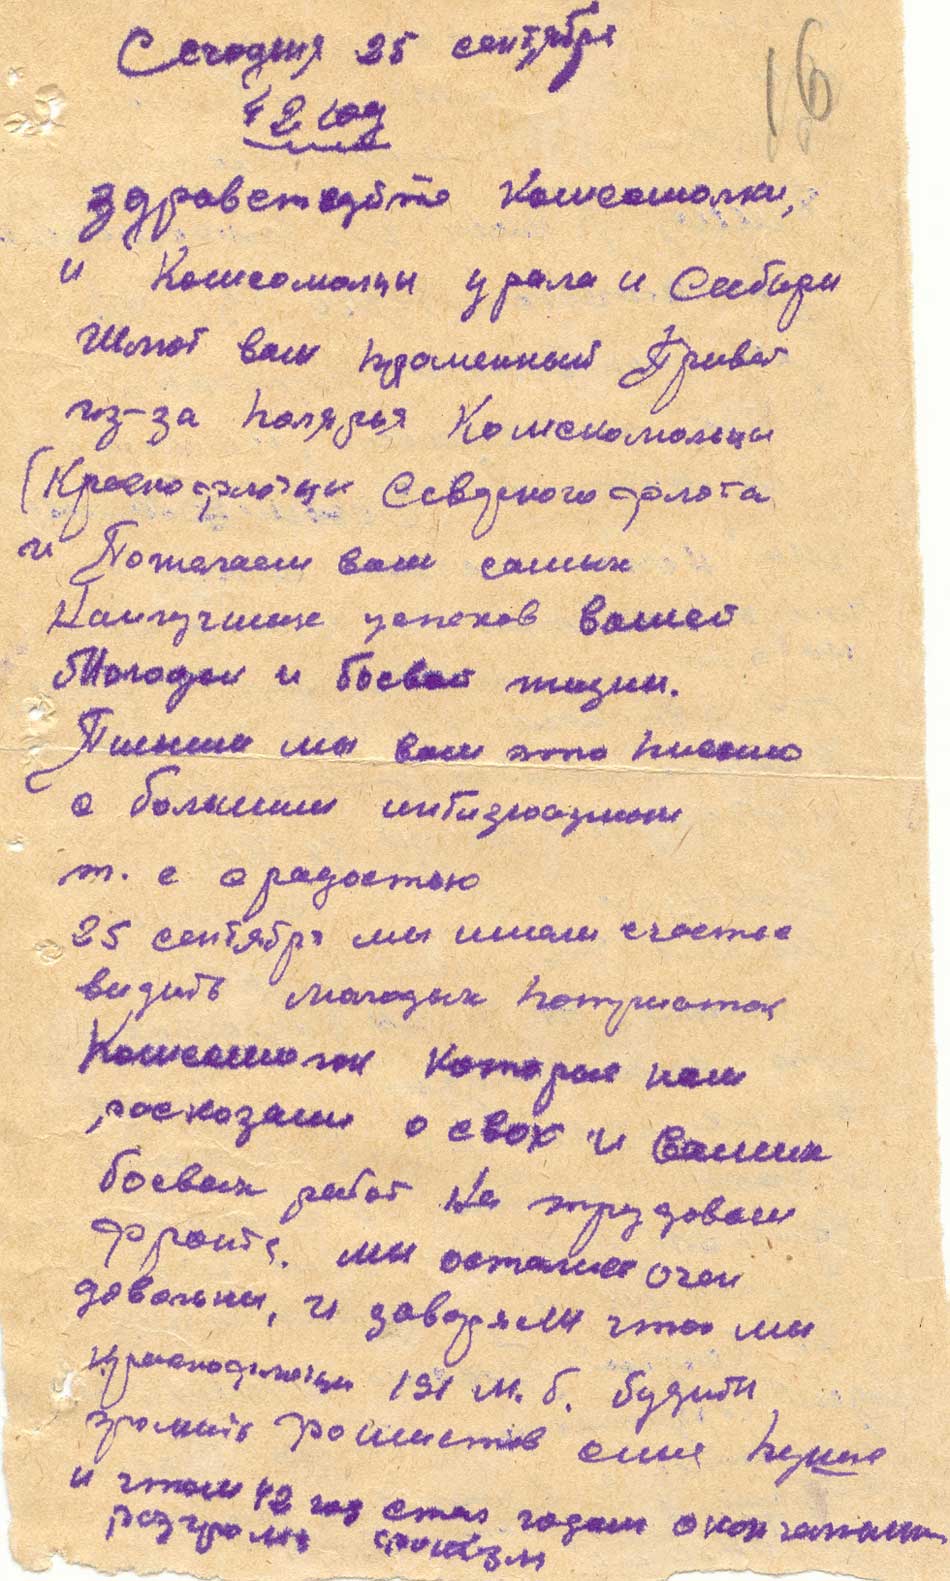 16
Сегодня 25 сентября
42 год
Здравствуйте Комсомолки,
и Комсомольцы урала и Сибири
Шлют вам пламенный Привет
из-за полярья Комсомольцы
(Краснофлотцы Северного флота
и Пожелаем вам самых
Наилучших успехов вашей
Молодой и боевой жизни.
Пишем мы вам это письмо
с большим интизюазмом
т. е с радостью
25 сентября мы имели счастье
видить молодых патриоток
Комсомолок которые нам
расказали о своих и Ваших
боевых работ На трудовом
фронте. мы остались очен
довольны, и заверяем что мы
краснофлотцы 191 М. б. будим
громить фашистов еще лучше
и чтоб 42 год стал годом окончательно
разгрома фашизм